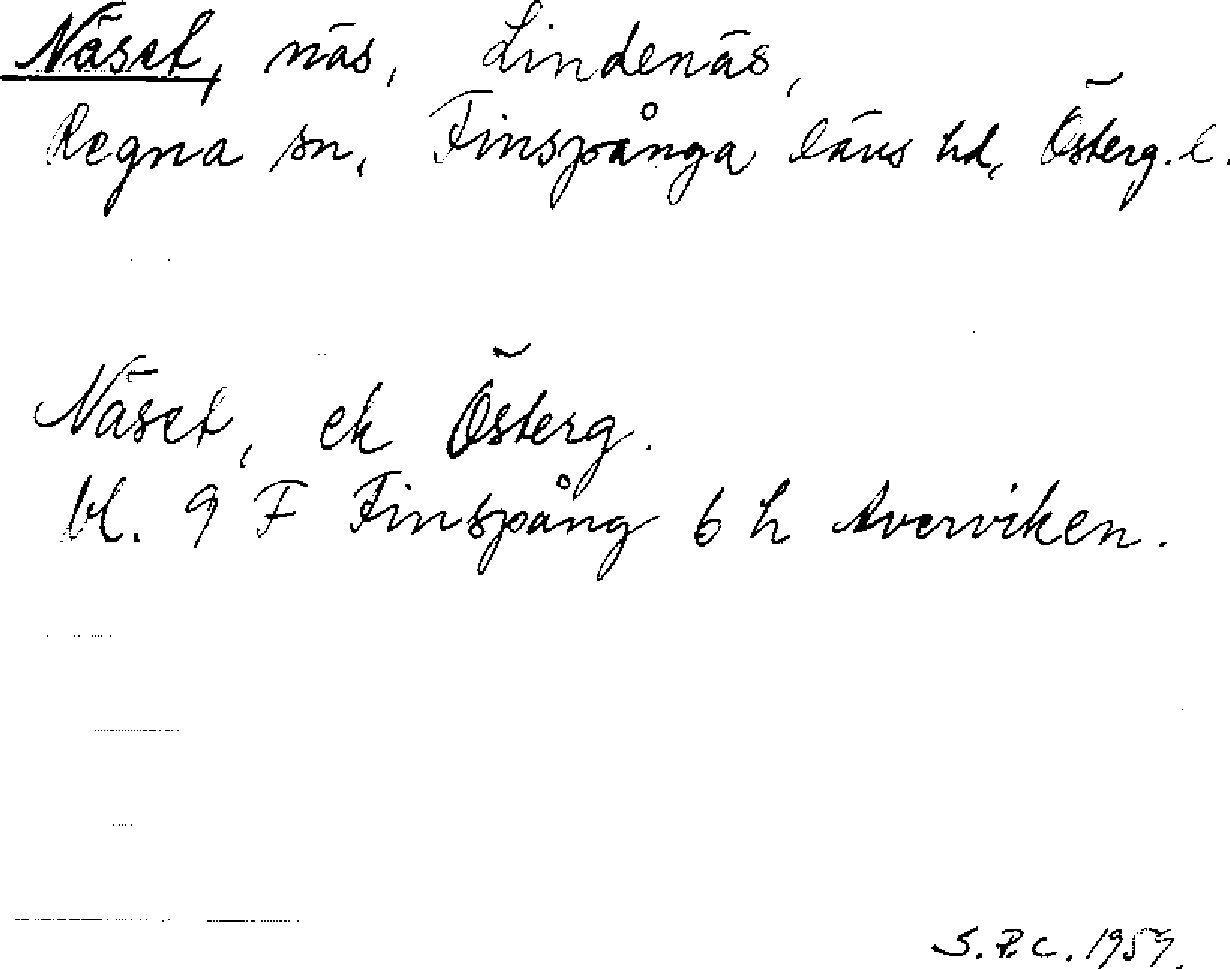 Näset, näs, Lindenäs,
Regna sn, Finspånga läns hd, Österg. l.
Näset, ek Österg.
bl. 9 F Finspång 6 h Averviken.
S. R. C. 1957.